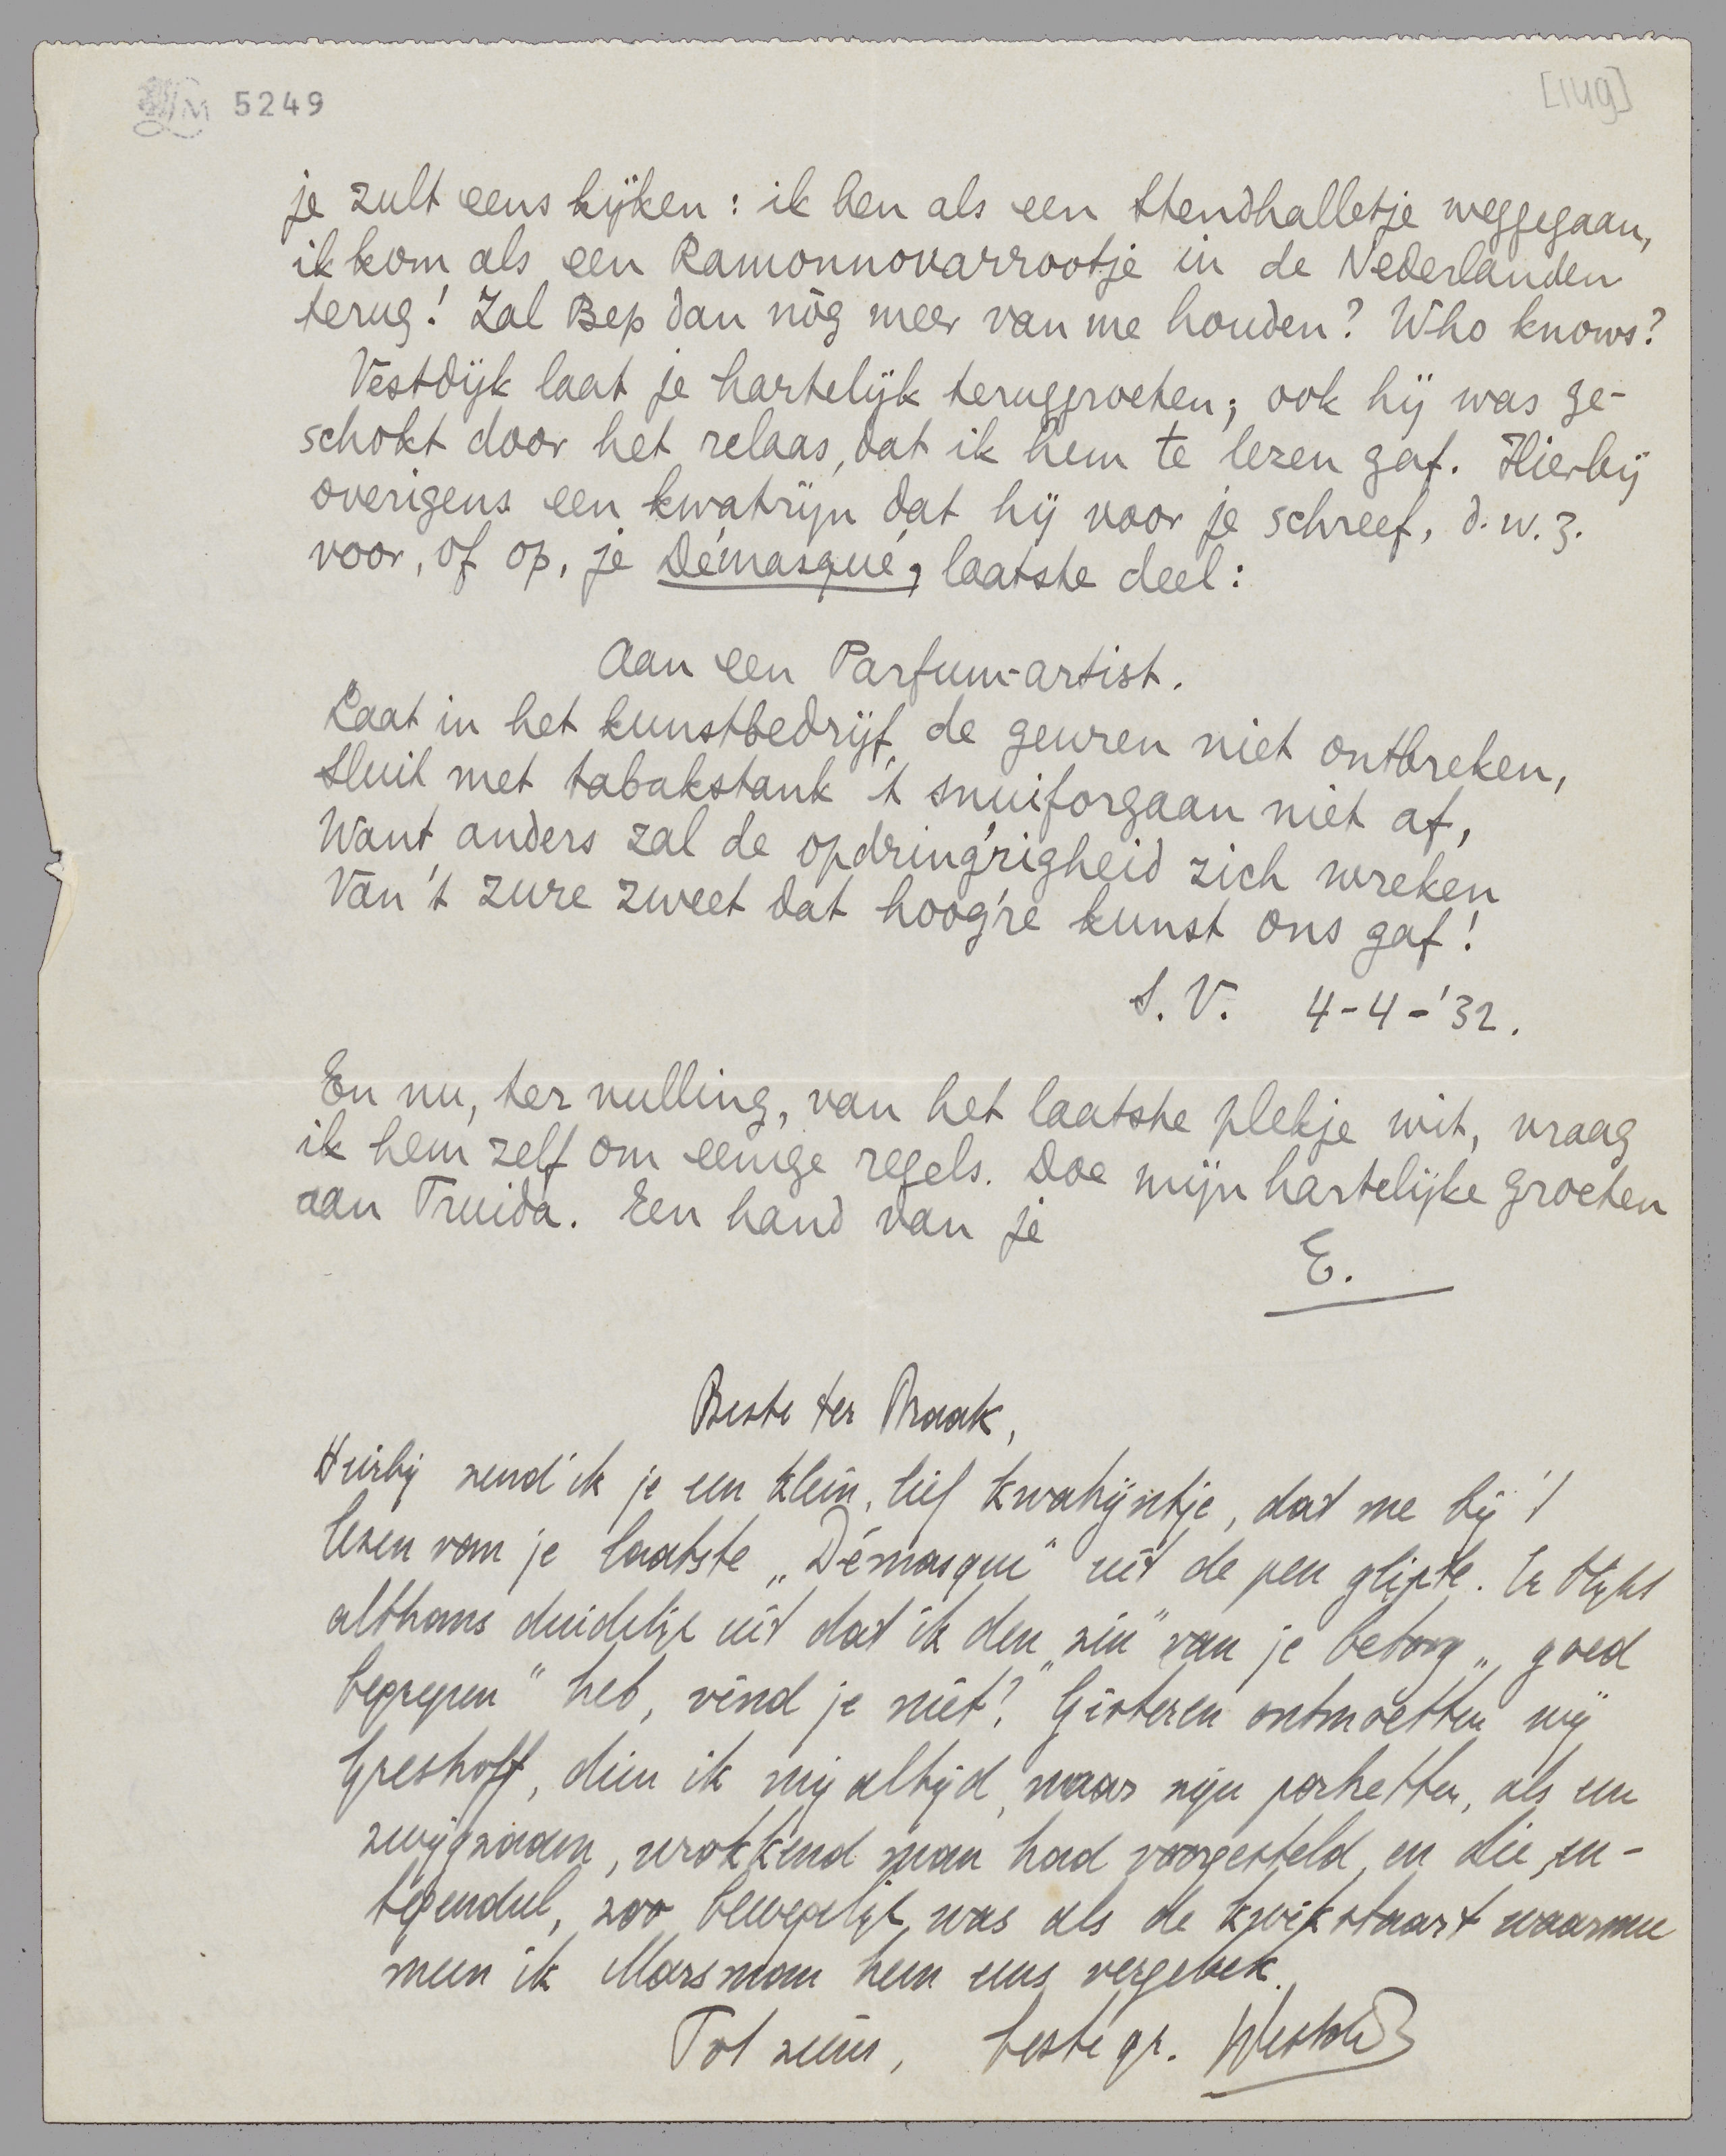 5249
je zult eens kijken: ik ben als een Stendhalletje weggegaan,
ik kom als een Ramonnovarrootje in de Nederlanden
terug! Zal Bep dan nòg meer van me houden? Who knows?
Vestdijk laat je hartelijk teruggroeten; ook hij was ge-
schokt door het relaas, dat ik hem te lezen gaf. Hierbij
overigens een kwatrijn dat hij voor je schreef, d.w.z.
voor, of op, je Démasqué, laatste deel:
Aan een Parfum-artist.
Laat in het kunstbedrijf de geuren niet ontbreken,
Sluit met tabakstank 't snuiforgaan niet af,
Want anders zal de opdring'righeid zich wreken
Van 't zure zweet dat hoog're kunst ons gaf!
S.V. 4-4-'32.
En nu, ter vulling, van het laatste plekje wit, vraag
ik hem zelf om eenige regels. Doe mijn hartelijke groeten
aan Truida. Een hand van je
E.
Beste ter Braak,
Hierbij zend ik je een klein, lief kwatrijntje, dat me bij 't
lezen van je laatste „Démasqué" uit de pen glipte. Er blijkt
althans duidelijk uit dat ik den „zin" van je betoog „goed
begrepen" heb, vind je niet? Gisteren ontmoetten wij
Greshoff, dien ik mij altijd, naar zijn portretten, als een
zwijgzaam, wrokkend man had voorgesteld, en die, in-
tegendeel, zoo bewegelijk was als de kwikstaart waarmee
meen ik Marsman hem eens vergeleek.
Tot ziens, beste gr.